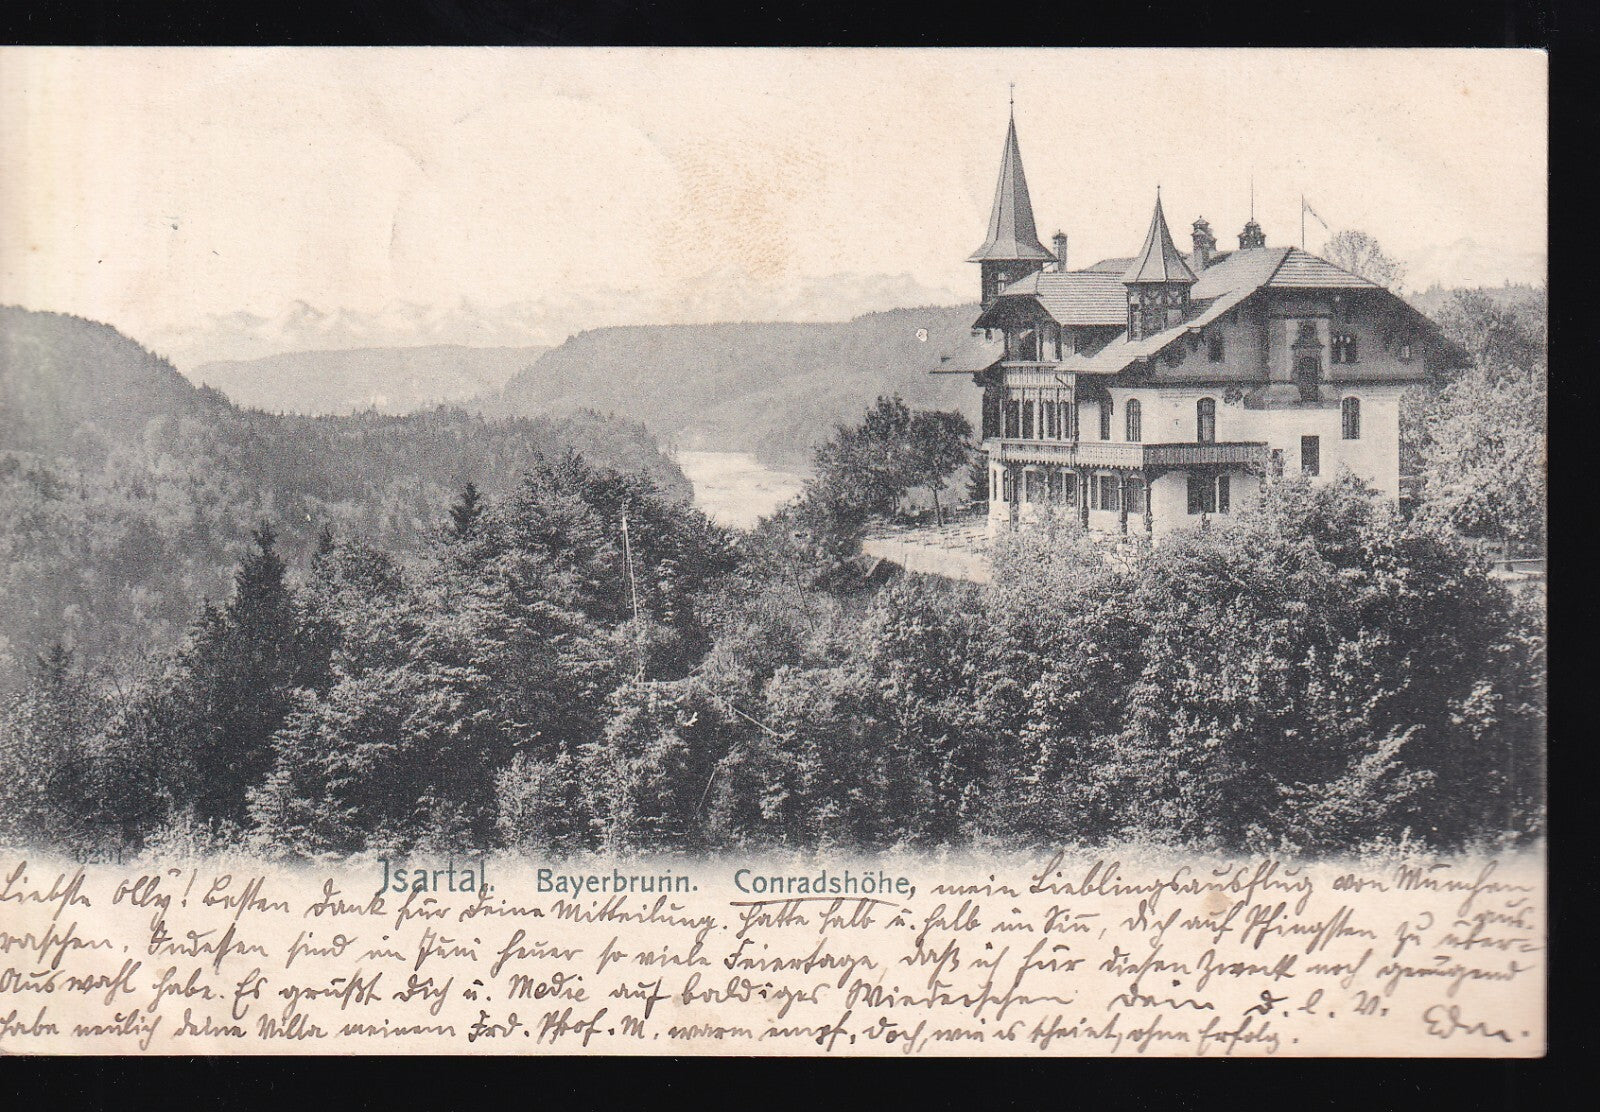 6291
Isartal. Bayerbrunn. Conradshöhe, mein Lieblingsausflug von München aus.
Liebste Olly! Besten Dank für Deine Mitteilung. Hatte halb u. halb im Sinn, Dich auf Pfingsten zu über=
raschen. Indessen sind im Juni heuer so viele Feiertage, daß ich für diesen Zweck noch genügend
Auswahl habe. Es grüßt Dich u. Medie auf baldiges Wiedersehen Dein D. l. V.
habe neulich deine Villa meinem Frd. Prof. M. warm empf. doch, wie es scheint, ohne Erfolg.